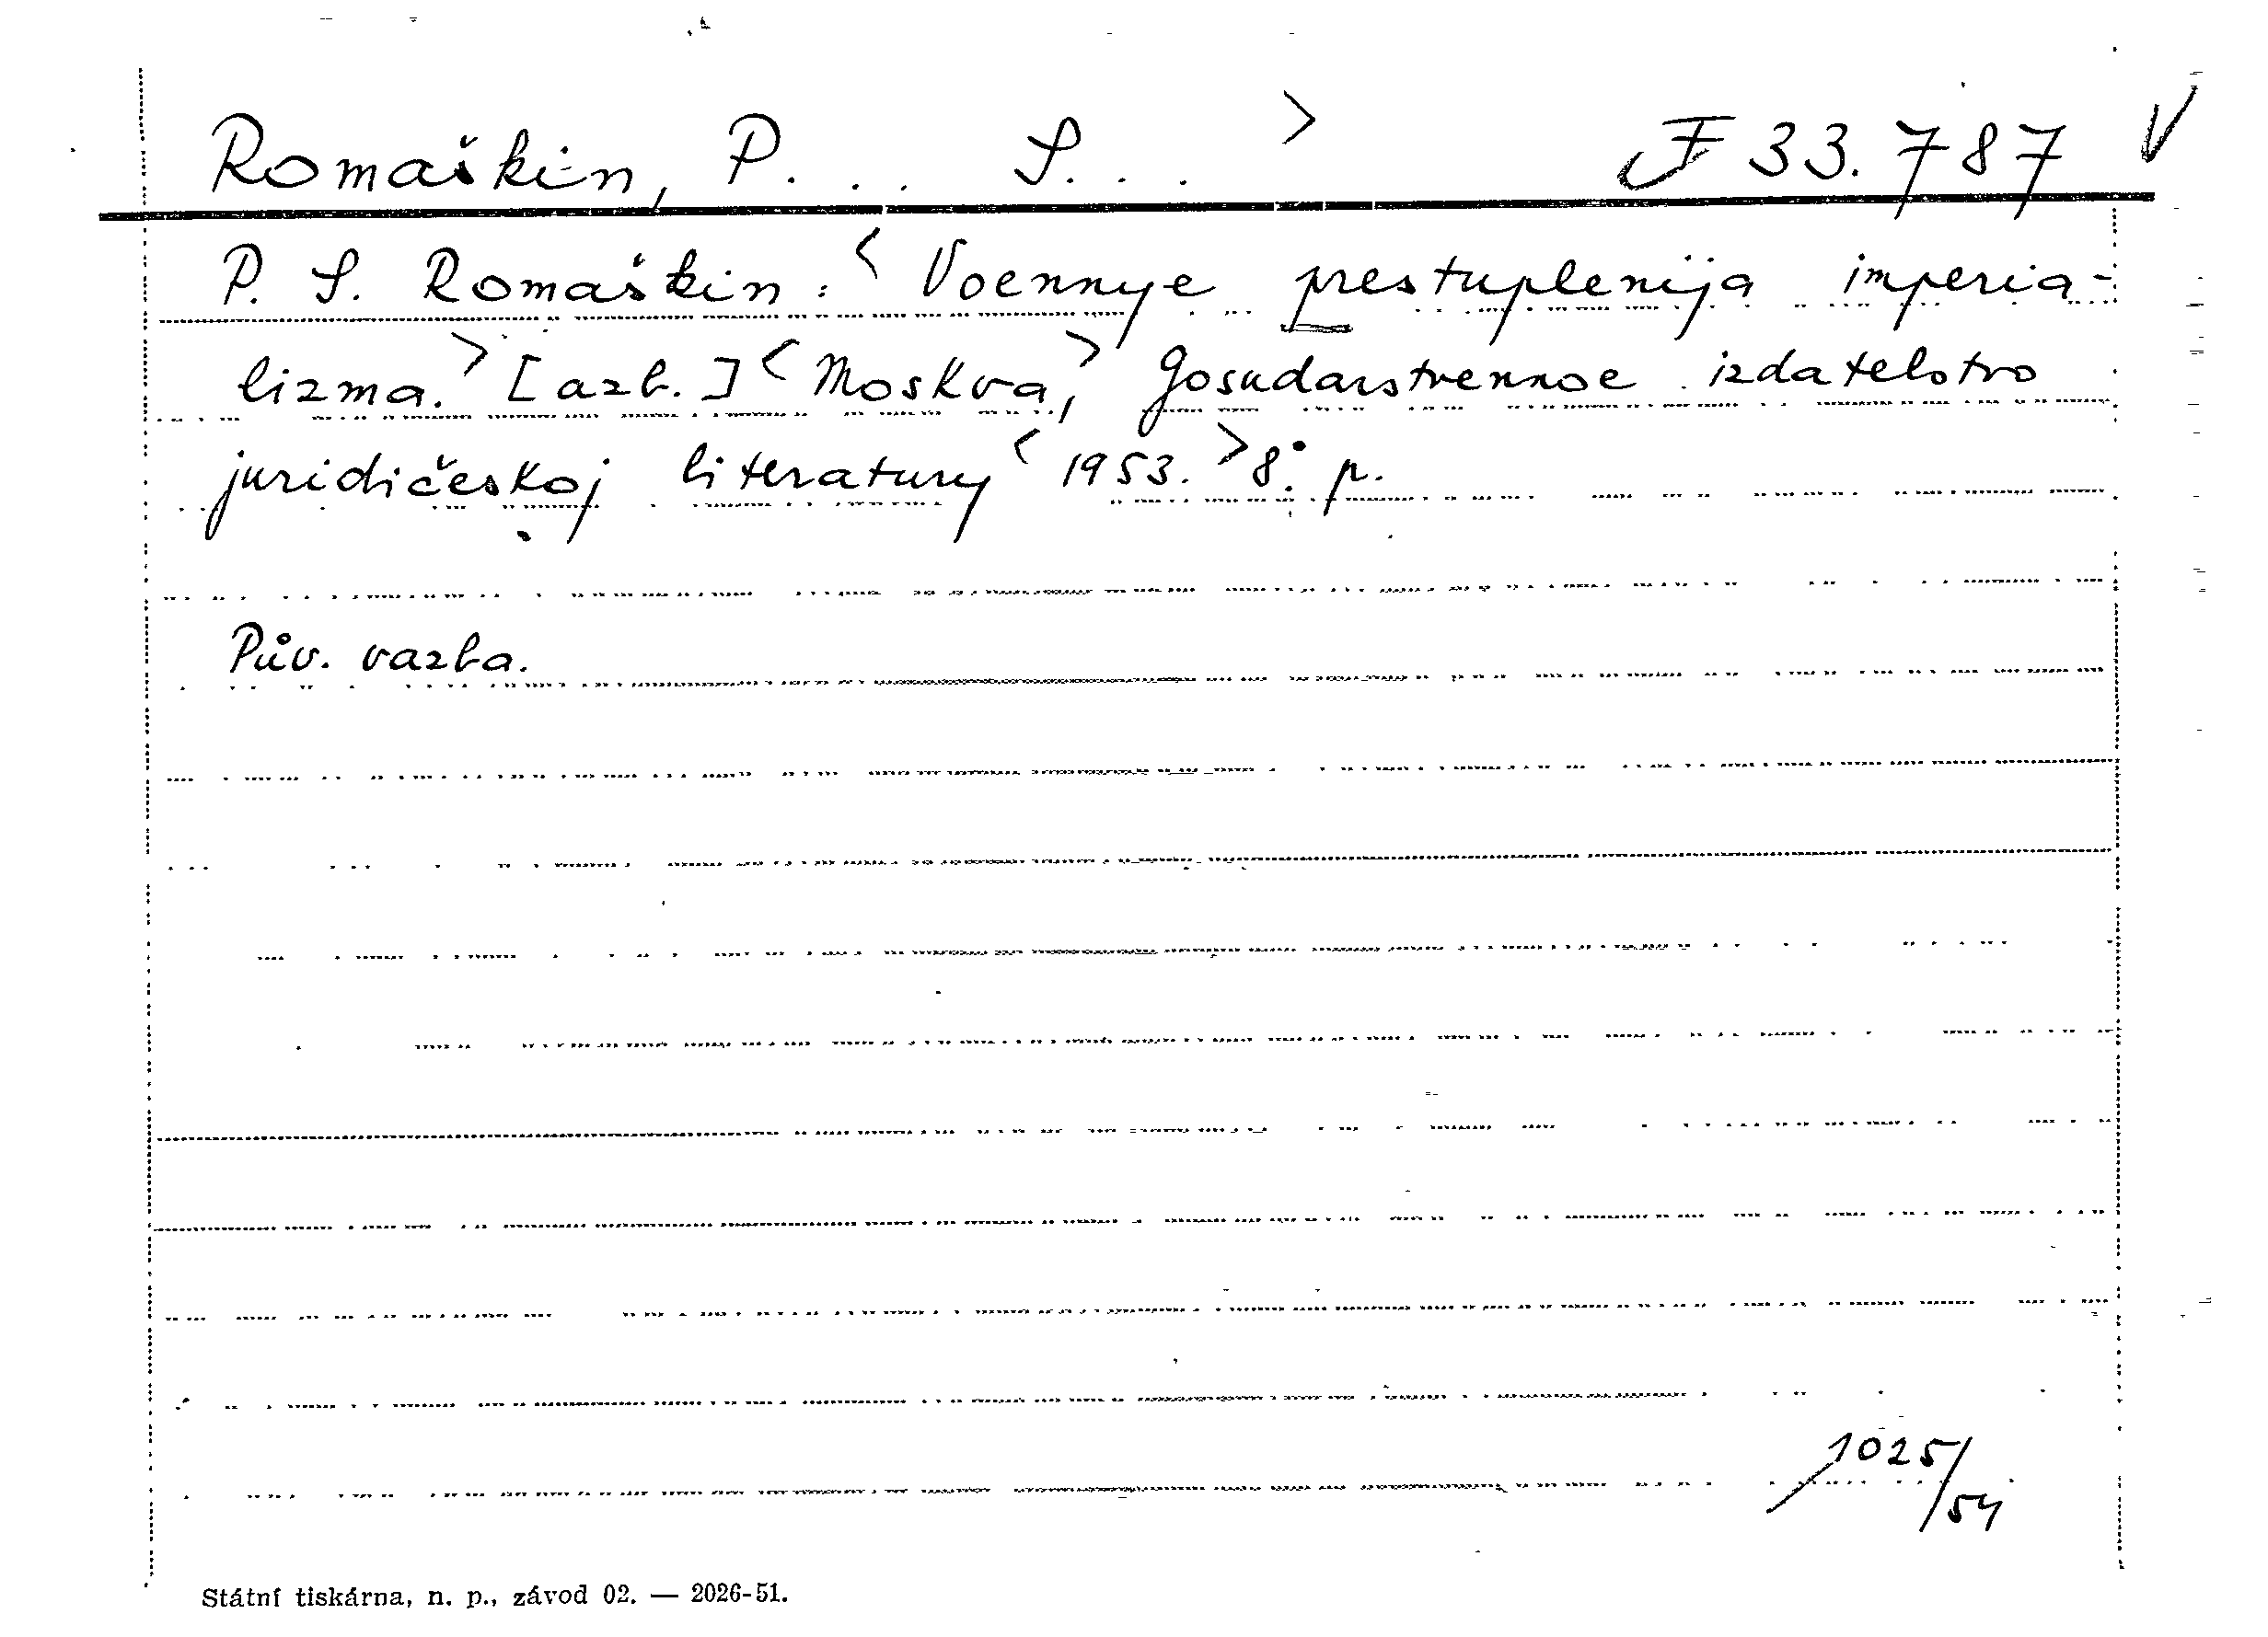 Romaškin, P. . . S. . . > F 33.787 V
P. S. Romaškin: < Voennye prestuplenija imperia-
lizma. > [azb.] < Moskva, > Gosudarstvennoe izdatelstvo
juridičeskoj literatury < 1953. > 8°. p.
Pův. vazba.
1025/54
Státní tiskárna, n. p., závod 02. — 2026-51.